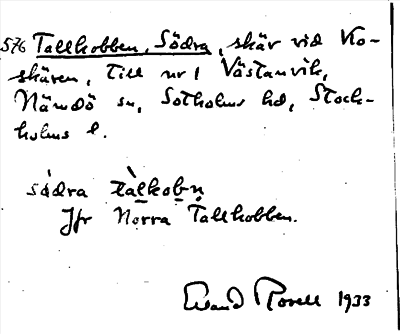 576 Tallkobben, Södra, skär vid Ko-
skären, till nr 1 Västanvik,
Nämdö sn, Sotholms hd, Stock-
holms l.
södra tàlkobṇ
Jfr Norra Tallkobben.
Evand Rosell 1933